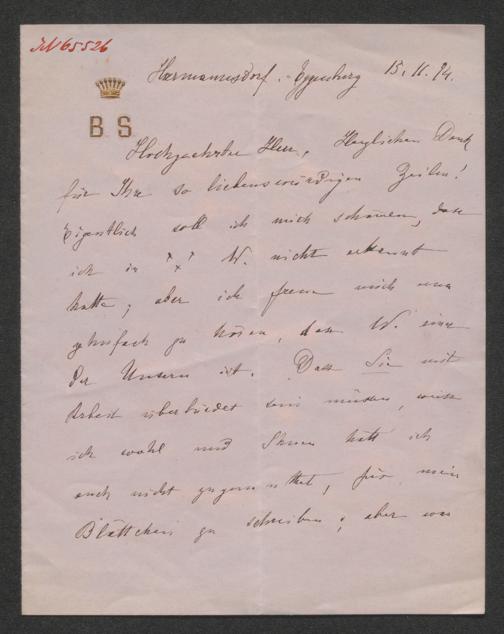 IN 65526
Harmannsdorf – Eggenburg 15. 11. 94.
B S
Hochgeehrter Herr, Herzlichen Dank
für Ihre so liebenswürdigen Zeilen!
Eigentlich soll ich mich schämen, dass
ich in W. nicht erkannt
hatte; aber ich freue mich nun
zehnfach zu hören, dass W. einer
der Unseren ist. Dass Sie mit
Arbeit überbürdet sein müssen, weiss
ich wohl und Ihnen hätt ich
auch nicht zugemuthet, für mein
Blättchen zu schreiben; aber was